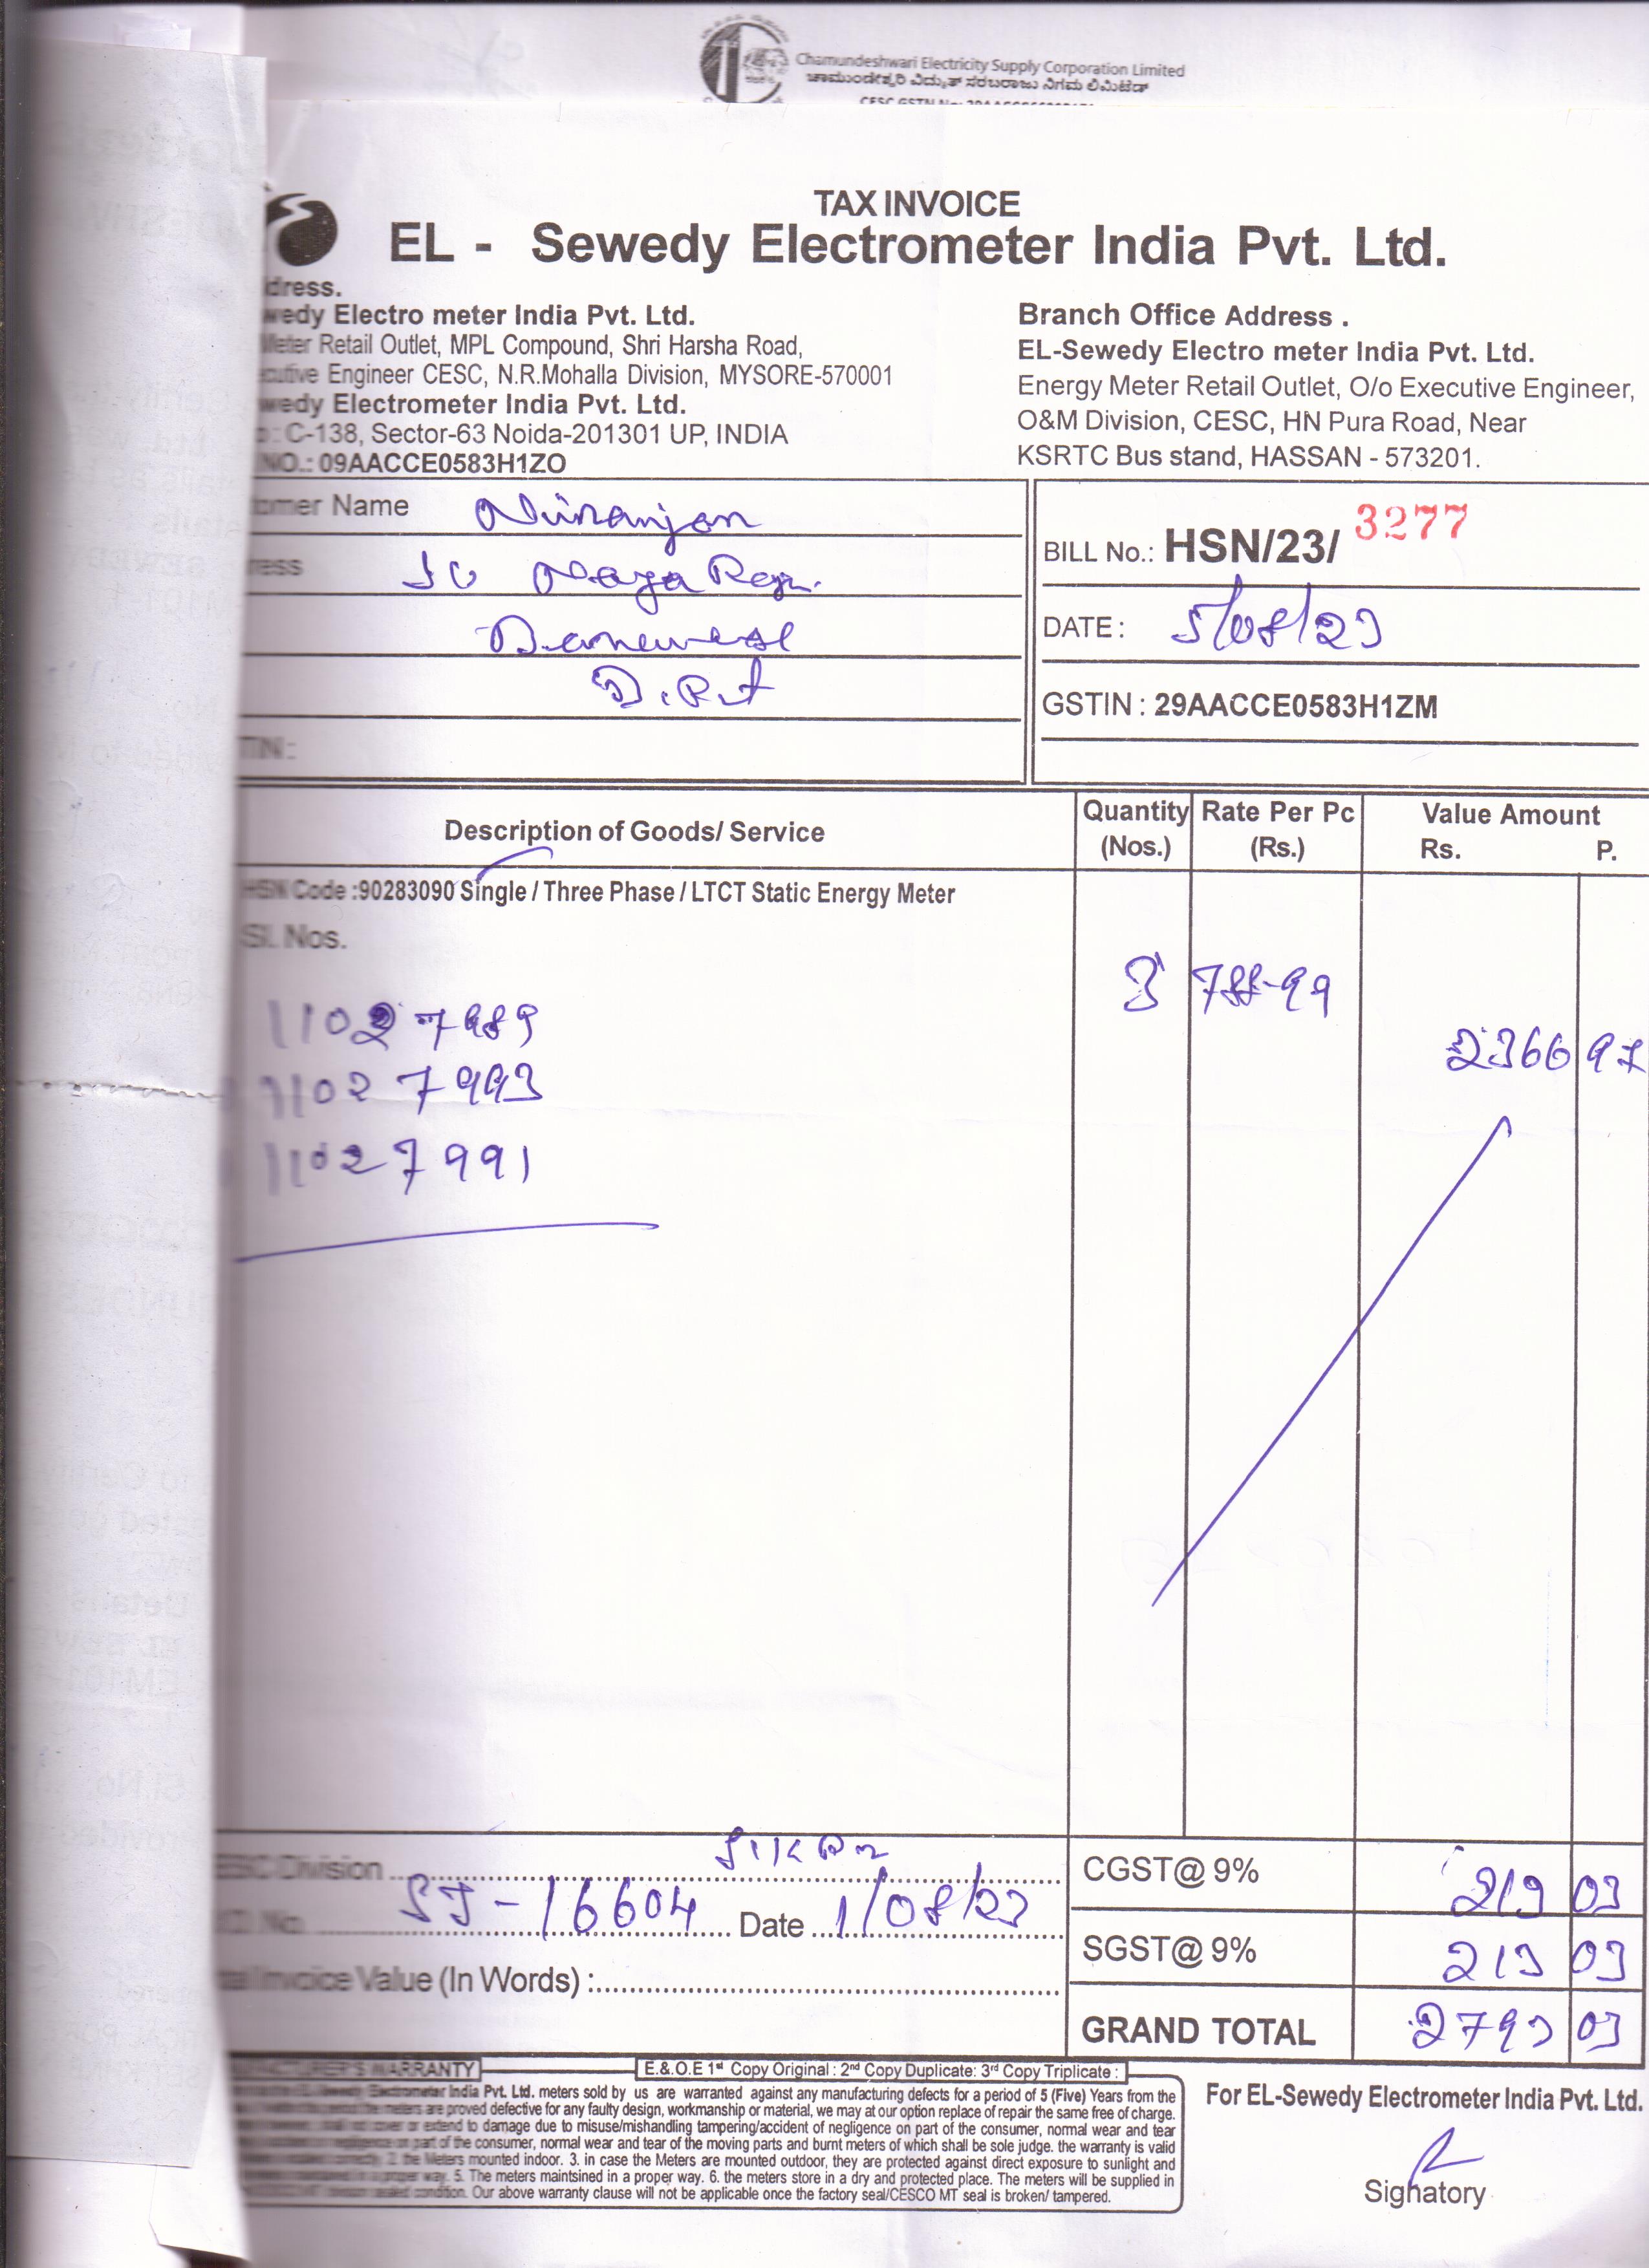 Chamundeshwari Electricity Supply Corporation Limited
ಚಾಮುಂಡೇಶ್ವರಿ ವಿದ್ಯುತ್ ಸರಬರಾಜು ನಿಗಮ ಲಿಮಿಟೆಡ್
TAX INVOICE
EL - Sewedy Electrometer India Pvt. Ltd.
dress.
wedy Electro meter India Pvt. Ltd.
Meter Retail Outlet, MPL Compound, Shri Harsha Road,
cutive Engineer CESC, N.R.Mohalla Division, MYSORE-570001
wedy Electrometer India Pvt. Ltd.
: C-138, Sector-63 Noida-201301 UP, INDIA
NO.: 09AACCE0583H1ZO
Branch Office Address .
EL-Sewedy Electro meter India Pvt. Ltd.
Energy Meter Retail Outlet, O/o Executive Engineer,
O&M Division, CESC, HN Pura Road, Near
KSRTC Bus stand, HASSAN - 573201.
omer Name Niranjan
ress
TIN :
BILL No.: HSN/23/ 3277
DATE : 5/08/23
GSTIN : 29AACCE0583H1ZM
Description of Goods/ Service
Quantity (Nos.)
Rate Per Pc (Rs.)
Value Amount
Rs. P.
HSN Code :90283090 Single / Three Phase / LTCT Static Energy Meter
Sl. Nos.
3 788-99
2366 97
11027989
11027993
11027991
Division
SJ-16604 Date 1/08/23
Invoice Value (In Words) :
CGST@ 9% 213 03
SGST@ 9% 213 03
GRAND TOTAL 2793 03
MANUFACTURER'S WARRANTY
E.& O.E 1st Copy Original : 2nd Copy Duplicate: 3rd Copy Triplicate :
Electrometer India Pvt. Ltd. meters sold by us are warranted against any manufacturing defects for a period of 5 (Five) Years from the
are proved defective for any faulty design, workmanship or material, we may at our option replace of repair the same free of charge.
or extend to damage due to misuse/mishandling tampering/accident of negligence on part of the consumer, normal wear and tear
part of the consumer, normal wear and tear of the moving parts and burnt meters of which shall be sole judge. the warranty is valid
2. the Meters mounted indoor. 3. in case the Meters are mounted outdoor, they are protected against direct exposure to sunlight and
way. 5. The meters maintsined in a proper way. 6. the meters store in a dry and protected place. The meters will be supplied in
condition. Our above warranty clause will not be applicable once the factory seal/CESCO MT seal is broken/ tampered.
For EL-Sewedy Electrometer India Pvt. Ltd.
Signatory